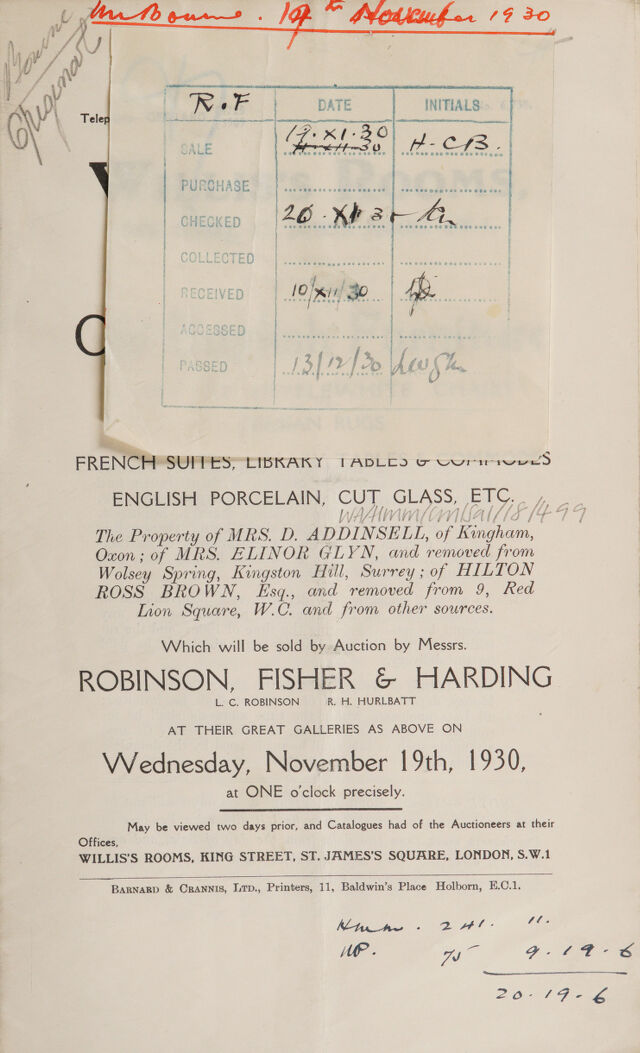 Mr Bourne. 19th November 1930
Bourne
Original
Telep
R.F DATE INITIALS
SALE 19.XI.30 H-CB.
PURCHASE
CHECKED 20.XI 30
COLLECTED
RECEIVED 10/XII/30
ACCESSED
PASSED 13/12/30
FRENCH SUITES, LIBRARY TABLES & COMMODES
ENGLISH PORCELAIN, CUT GLASS, ETC.
WA/HMM/CM/Sal/18/499
The Property of MRS. D. ADDINSELL, of Kingham,
Oxon; of MRS. ELINOR GLYN, and removed from
Wolsey Spring, Kingston Hill, Surrey; of HILTON
ROSS BROWN, Esq., and removed from 9, Red
Lion Square, W.C. and from other sources.
Which will be sold by Auction by Messrs.
ROBINSON, FISHER & HARDING
L. C. ROBINSON R. H. HURLBATT
AT THEIR GREAT GALLERIES AS ABOVE ON
Wednesday, November 19th, 1930,
at ONE o'clock precisely.
May be viewed two days prior, and Catalogues had of the Auctioneers at their
Offices,
WILLIS'S ROOMS, KING STREET, ST. JAMES'S SQUARE, LONDON, S.W.1
BARNARD & CRANNIS, LTD., Printers, 11, Baldwin's Place Holborn, E.C.1.
241. 11.
75 9.19.6
20.19.6